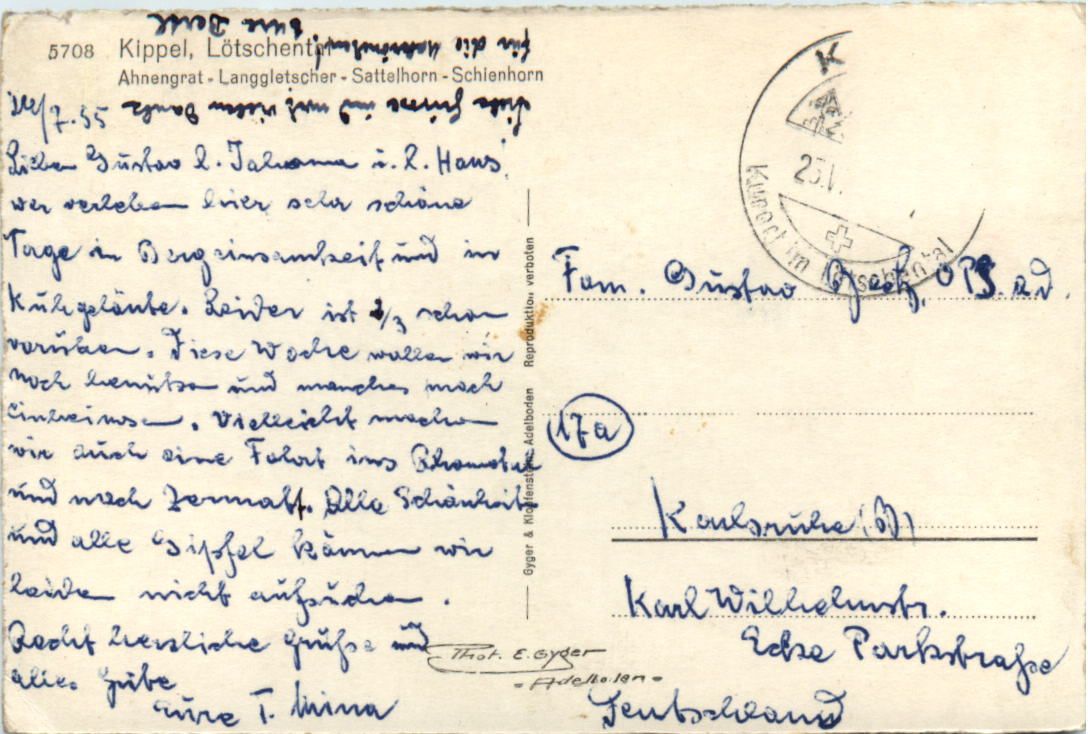 5708 Kippel, Lötschental
Ahnengrat - Langgletscher - Sattelhorn - Schienhorn
Liebe Grüsse und mit vielem Dank
für die
Eure
24/7.55
Lieber Gustav l. Johanna u. l. Hans!
wir verleben hier sehr schöne
Tage in Bergeinsamkeit und in
Kuhgeläute. Leider ist 2/3 schon
vorüber. Diese Woche wollen wir
noch benützen und manches noch
einheimsen. Vielleicht machen
wir auch eine Fahrt ins Rhonetal
und nach Zermatt. Alle Schönheit
und alle Gipfel können wir
leider nicht aufsuchen.
Recht herzliche Grüße und
alles Gute
Eure T. Mina
Gyger & Klopfenstein, Adelboden Reproduktion verboten
Phot. E. Gyger
- Adelboden -
K
25.V
Kurort im Lötschental
Fam. Gustav
17a
Karlsruhe (B)
Karl Wilhelmstr.
Ecke Parkstraße
Deutschland